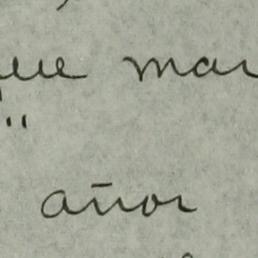 que mar
"
años